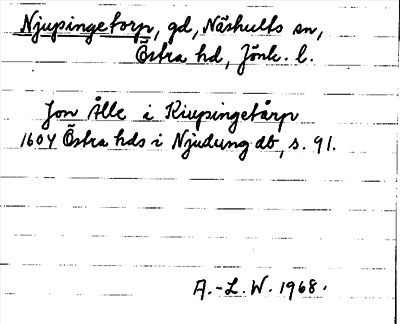 Njupingetorp, gd, Näshults sn,
Östra hd, Jönk. l.
Jon Ålle i Kiupingetårp
1604 Östra hds i Njudung db, s. 91.
A.-L. W. 1968.